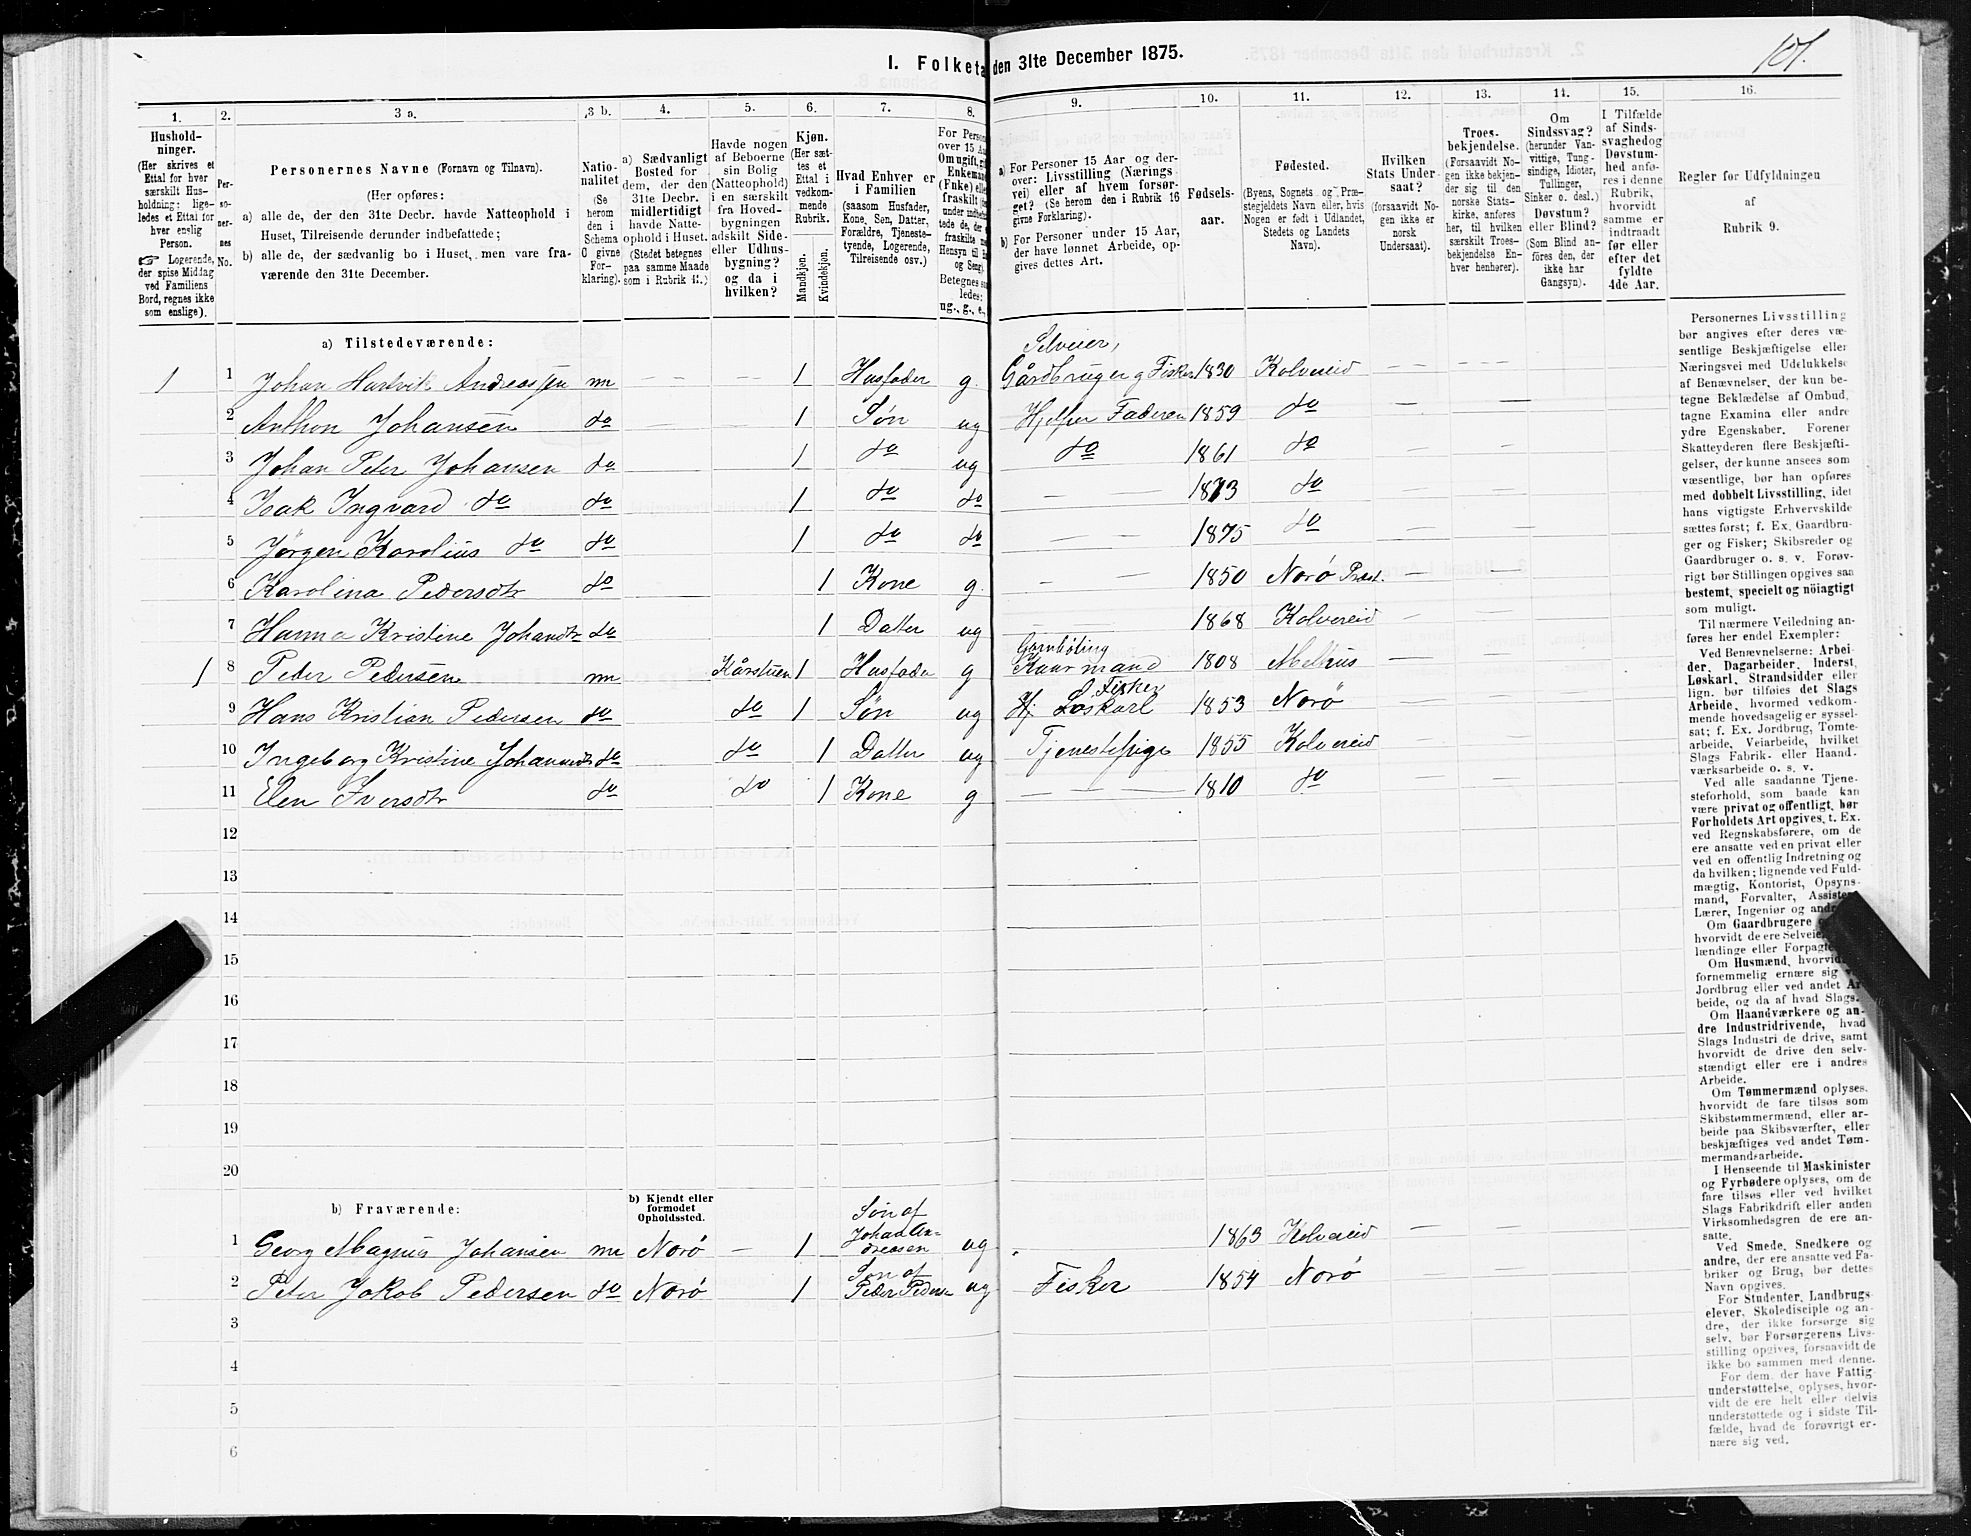 101.
I. Folketa den 31te December 1875.
1. 2. 3 a. 3 b. 4. 5. 6. 7. 8. 9. 10. 11. 12. 13. 14. 15. 16.
Hushold-
ninger.
(Her skrives et
Ettal for hver
særskilt Hus-
holdning; lige-
ledes et Ettal for
hver enslig
Person.
☞ Logerende,
der spise Middag
ved Familiens
Bord, regnes ikke
som enslige).
Per-
so-
ner-
nes
No.
Personernes Navne (Fornavn og Tilnavn).
(Her opføres:
a) alle de, der den 31te Decbr. havde Natteophold i
Huset, Tilreisende derunder indbefattede;
b) alle de, der sædvanlig bo i Huset, men vare fra-
værende den 31te December.
Natio-
nalitet
(Se
herom
den i
Schema
C givne
For-
klaring).
a) Sædvanligt
Bosted for
dem, der den
31te Decbr.
midlertidigt
havde Natte-
ophold i Huset.
(Stedet betegnes
paa samme Maade
som i Rubrik 11.)
Havde nogen
af Beboerne
sin Bolig
(Natteophold)
i en særskilt
fra Hoved-
bygningen
adskilt Side-
eller Udhus-
bygning?
og da i
hvilken?
Kjøn.
(Her sæt-
tes et
Ettal i
vedkom-
mende
Rubrik.
Mandkjøn.
Kvindekjøn.
Hvad Enhver er
i Familien
(saasom Husfader,
Kone, Søn, Datter,
Forældre, Tjeneste-
tyende, Logerende,
Tilreisende osv.)
For Person
over 15 Aa
Om ugift, g
Enkeman
(Fnke) elle
fraskilt
under indbef
tede de, der
fraskilte
Hensyn til
og Seng).
Betegnes s
ledes:
ug., g., e.,
a) For Personer 15 Aar og der-
over: Livsstilling (Nærings-
vei) eller af hvem forsør-
get? (Se herom den i Rubrik 16
givne Forklaring).
b) For Personer under 15 Aar,
der have lønnet Arbeide, op-
gives dettes Art.
Fødsels-
aar.
Fødested.
(Byens, Sognets og Præ-
stegjeldets Navn eller, hvis
Nogen er født i Udlandet,
Stedets og Landets
Navn).
Hvilken
Stats Under-
saat?
(forsaavidt No-
gen ikke er
norsk
Undersaat).
Troes-
bekjendelse.
(Forsaavidt No-
gen ikke bekjen-
der sig til den
norske Stats-
kirke, anføres
her, til hvilken
særskilt Troes-
bekjendelse En-
hver henhører).
Om
Sindssvag?
(herunder Van-
vittige, Tung-
sindige, Idioter,
Tullinger,
Sinker o. desl.)
Døvstum?
eller Blind?
(Som Blind an-
føres den, der
ikke har
Gangsyn).
I Tilfælde
af Sinds-
svaghed og
Døvstum-
hed anfø-
res i denne
Rubrik,
hvorvidt
samme er
indtraadt
før eller
efter det
fyldte
4de Aar.
Regler for Udfyldningen
af
Rubrik 9.
a) Tilstedeværende:
Selveier,
1 1 Johan Hartvik Andreassen nn — — 1 Husfader g. Gårdbruger g Fisker 1830 Kolvereid — — — —
2 Anthon Johansen do — — 1 Søn ug Hjelper Faderen 1859 do — —
3 Johan Peter Johansen do 1 do ug do 1861 do — —
4 Isak Ingvard do do 1 do do — — 1873 do — —
5 Jørgen Karolius do do 1 do do — — 1875 do — —
6 Karolina Pedersdtr do 1 Kone g. — — 1850 Norø Præst. — —
7 Hanna Kristine Johansdtr do 1 Datter ug 1868 Kolvereid — —
1 8 Peter Pedersen nn Kårstuen 1 Husfader g Kaarmand 1808 Melhus — —
Fisker
9 Hans Kristian Pedersen do do 1 Søn ug Hj Løskarl 1853 Norø — —
10 Ingeborg Kristine Johannesdtr do do 1 Datter ug Tjenestepige 1855 Kolvereid — —
11 Elen Iversdtr do do 1 Kone g — — — 1810 do — —
12
13
14
15
16
17
18
19
20
b) Fraværende:
b) Kjendt eller
formodet
Opholdssted.
Søn af
Johan An-
dreasen
1 Georg Magnus Johansen nn Norø — 1 ug 1863 Kolvereid — —
Søn af
Peder Pedersen
2 Peter Jakob Pedersen do Norø 1 ug Fisker 1854 Norø — —
3
4
5
6
Personernes Livsstilling
bør angives efter deres væ-
sentlige Beskjæftigelse eller
Næringsvei med Udelukkelse
af Benævnelser, der kun be-
tegne Beklædelse af Ombud,
tagne Examina eller andre
ydre Egenskaber. Forener
Skatteyderen flere Beskjæfti-
gelser, der kunne ansees som
væsentlige, bør han opføres
med dobbelt Livsstilling, idet
hans vigtigste Erhvervskilde
sættes først; f. Ex. Gaardbru-
ger og Fisker; Skibsreder og
Gaardbruger o. s. v. Forøv-
rigt bør Stillingen opgives saa
bestemt, specielt og nöiagtigt
som muligt.
Til nærmere Veiledning an-
føres her endel Exempler:
Ved Benævnelserne: Arbei-
der, Dagarbeider, Inderst,
Løskarl, Strandsidder eller
lign. bør tilføies det Slags
Arbeide, hvormed vedkom-
mende hovedsagelig er syssel-
sat; f. Ex. Jordbrug, Tomte-
arbeide, Veiarbeide, hvilket
Slags Fabrik- eller Haand-
værksarbeide o. s. v.
Ved alle saadanne Tjene-
steforhold, som baade kan
være privat og offentligt, bør
Forholdets Art opgives, t. Ex.
ved Regnskabsførere, om de
ere ansatte ved en privat eller
ved en offentlig Indretning og
da hvilken; lignende ved Fuld-
mægtig, Kontorist, Opsyns-
mand, Forvalter, Assistent,
Lærer, Ingeniør og andre.
Om Gaardbrugere
hvorvidt de ere Selveiere,
lændinge eller Forpagtere.
Om Husmænd, hvorvidt
fornemmelig ernære sig
Jordbrug eller ved andet Ar-
beide, og da af hvad Slags.
Om Haandværkere og an-
dre Industridrivende, hvad
Slags Industri de drive, samt
hvorvidt de drive den selv-
stændigt eller ere i andres
Arbeide.
Om Tømmermænd oplyses,
hvorvidt de fare tilsøs som
Skibstømmermænd, eller ar-
beide paa Skibsværfter, eller
beskjæftiges ved andet Tøm-
mermandsarbeide.
I Henseende til Maskinister
og Fyrbødere oplyses, om de
fare tilsøs eller ved hvilket
Slags Fabrikdrift eller anden
Virksomhedsgren de ere an-
satte.
Ved Smede, Snedkere og
andre, der ere ansatte ved Fa-
briker og Brug, bør dettes
Navn opgives.
For Studenter, Landbrugs-
elever, Skoledisciple og an-
dre, der ikke forsørge sig
selv, bør Forsørgerens Livs-
stilling opgives, forsaavidt de
ikke bo sammen med denne.
For dem, der have Fattig-
understøttelse, oplyses, hvor-
vidt de ere helt eller delvis
understøttede og i sidste Til-
fælde, hvad de forøvrigt er-
nære sig ved.